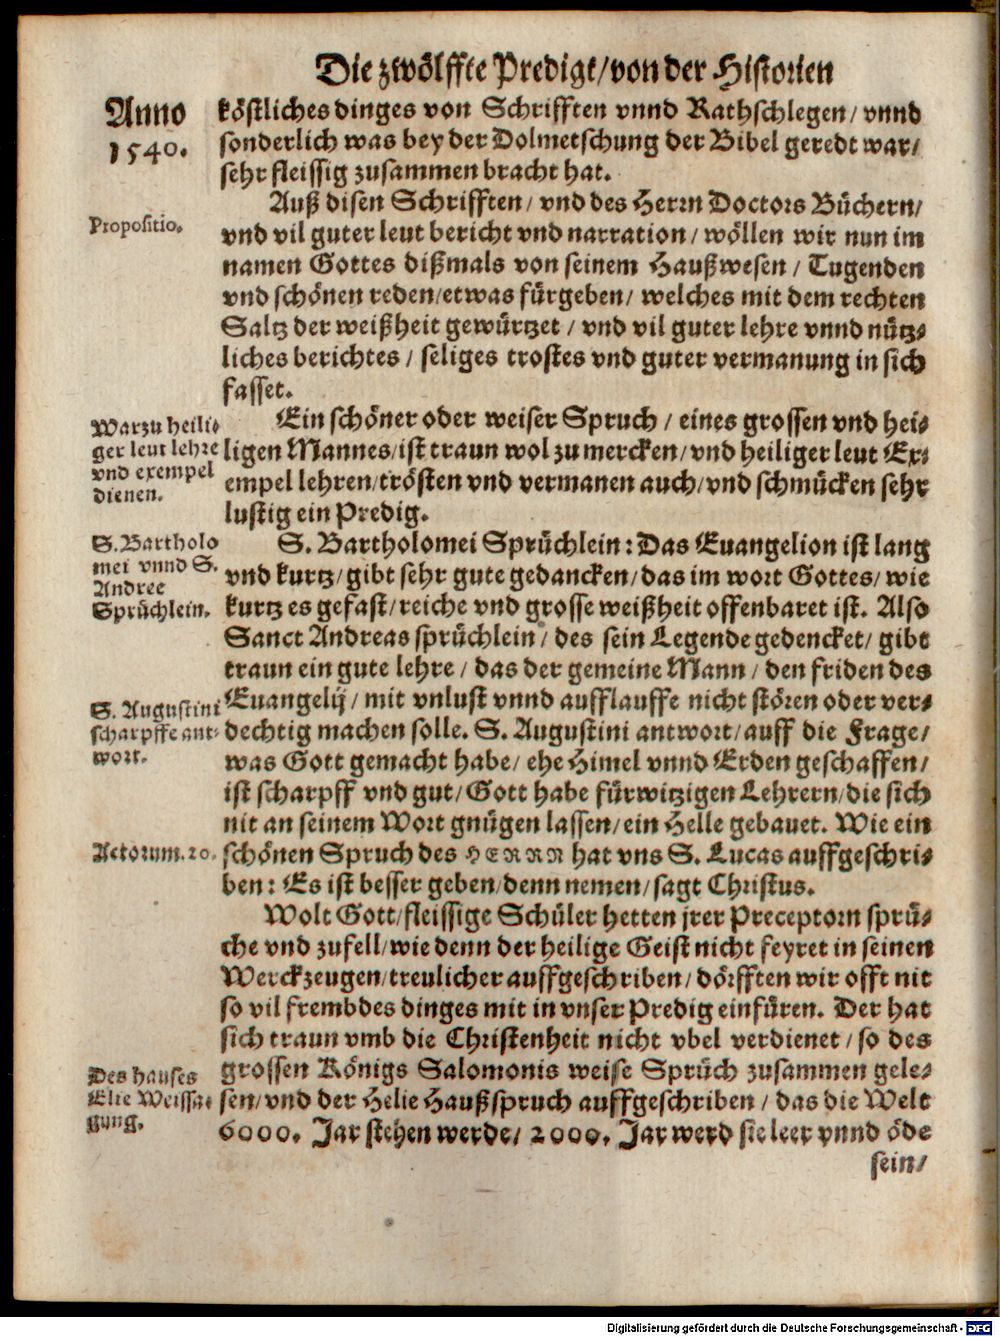 Die zwölffte Predigt/von der Historien
Anno
1540.
köstliches dinges von Schrifften vnnd Rathschlegen/ vnnd
sonderlich was bey der Dolmetschung der Bibel geredt war/
sehr fleissig zusammen bracht hat.
Propositio.
Auß disen Schrifften/ vnd des Herrn Doctors Büchern/
vnd vil guter leut bericht vnd narration/ wöllen wir nun im
namen Gottes dißmals von seinem Haußwesen/ Tugenden
vnd schönen reden/etwas fürgeben/ welches mit dem rechten
Saltz der weißheit gewürtzet/ vnd vil guter lehre vnnd nütz-
liches berichtes/ seliges trostes vnd guter vermanung in sich
fasset.
Warzu heili-
ger leut lehre
vnd exempel
dienen.
Ein schöner oder weiser Spruch/ eines grossen vnd hei-
ligen Mannes/ist traun wol zu mercken/vnd heiliger leut Ex-
empel lehren/trösten vnd vermanen auch/vnd schmücken sehr
lustig ein Predig.
S. Bartholo
mei vnnd S.
Andree
Sprüchlein.
S. Bartholomei Sprüchlein: Das Euangelion ist lang
vnd kurtz/gibt sehr gute gedancken/das im wort Gottes/wie
kurtz es gefast/reiche vnd grosse weißheit offenbaret ist. Also
Sanct Andreas sprüchlein/ des sein Legende gedencket/ gibt
traun ein gute lehre/ das der gemeine Mann/ den friden des
Euangelij/ mit vnlust vnnd aufflauffe nicht stören oder ver-
dechtig machen solle. S. Augustini antwort/auff die Frage/
was Gott gemacht habe/ ehe Himel vnnd Erden geschaffen/
ist scharpff vnd gut/Gott habe fürwitzigen Lehrern/die sich
nit an seinem Wort gnügen lassen/ein Helle gebauet. Wie ein
schönen Spruch des HERRN hat vns S. Lucas auffgeschri-
ben: Es ist besser geben/denn nemen/sagt Christus.
S. Augustini
scharpffe ant-
wort.
Actorum.20.
Wolt Gott/fleissige Schüler hetten jrer Preceptorn sprü-
che vnd zufell/wie denn der heilige Geist nicht feyret in seinen
Werckzeugen/treulicher auffgeschriben/dörfften wir offt nit
so vil frembdes dinges mit in vnser Predig einfüren. Der hat
sich traun vmb die Christenheit nicht vbel verdienet/ so des
grossen Königs Salomonis weise Sprüch zusammen gele-
sen/vnd der Helie Haußspruch auffgeschriben/ das die Welt
6000. Jar stehen werde/ 2000. Jar werd sie leer vnnd öde
Des hauses
Elie Weissa-
gung.
sein/
Digitalisierung gefördert durch die Deutsche Forschungsgemeinschaft - DFG